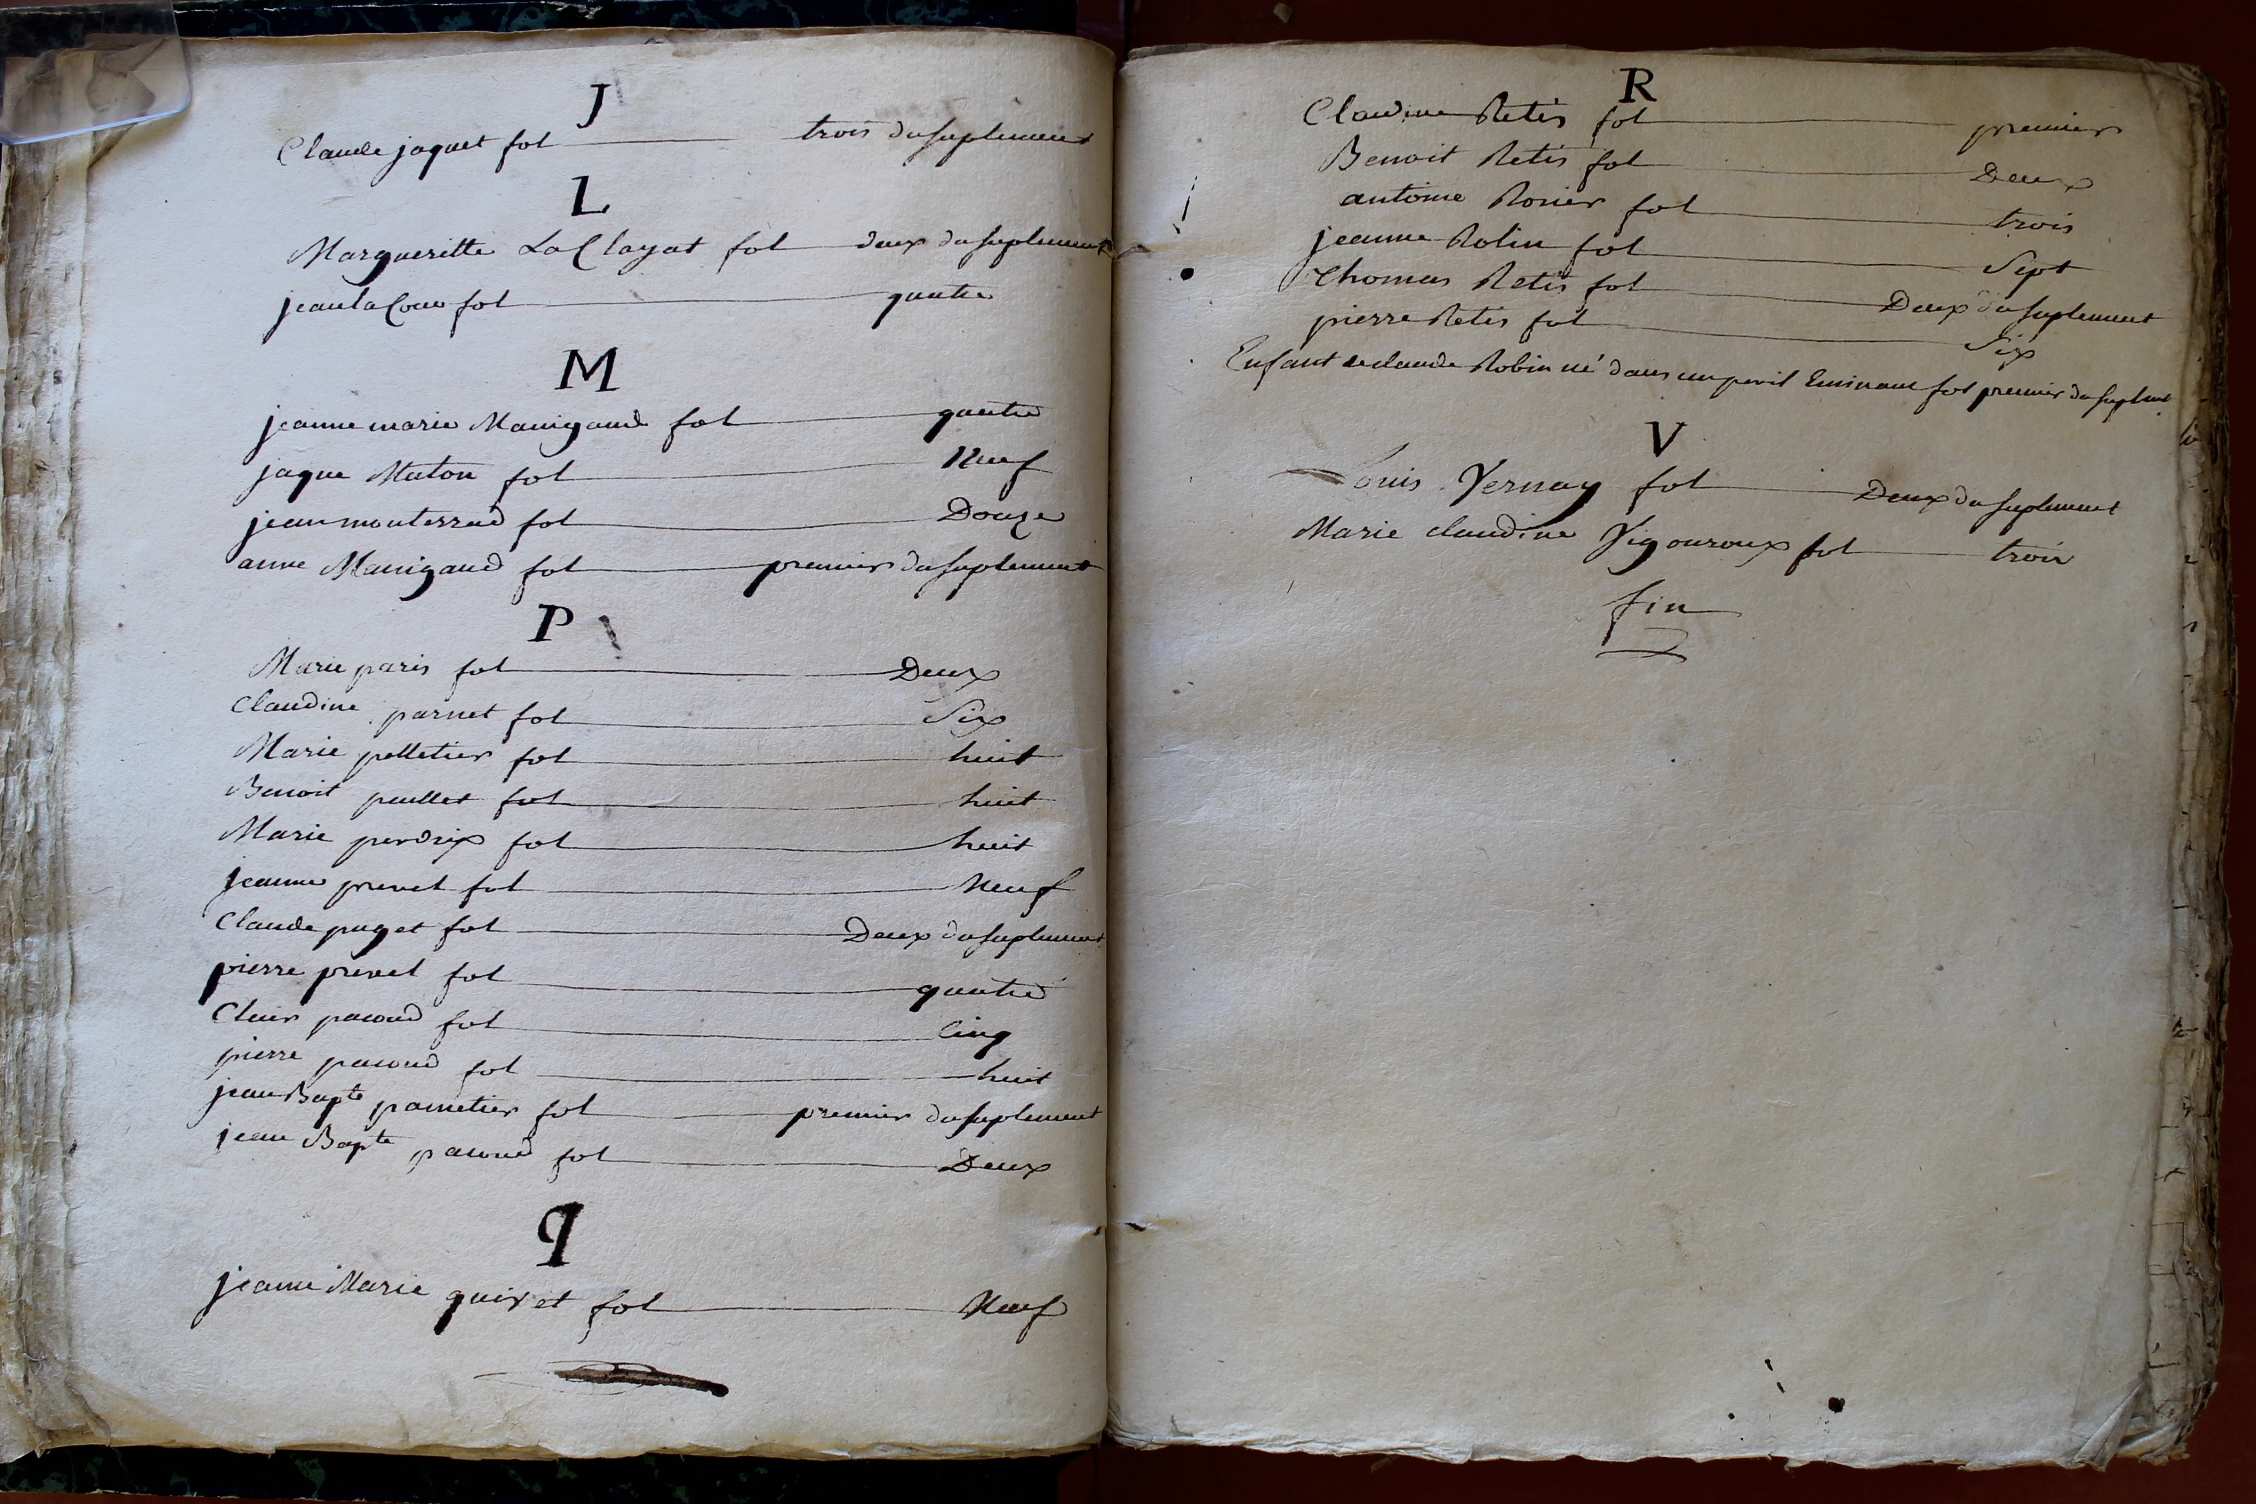 J
Claude jaquet fol trois du suplement
L
Margueritte La Clayat fol deux du suplement
jean la Cour fol quatre
M
jeanne marie Manigaud fol quatre
jaque Muton fol Neuf
jean monterrad fol Douze
anne Manigaud fol premier du suplement
P
Marie paris fol Deux
Claudine parnet fol Six
Marie pelletier fol huit
Benoit peullet fol huit
Marie perdrix fol huit
jeanne prevel fol Neuf
Claude puget fol Deux du suplement
pierre prevel fol quatre
Clair pacoud fol Cinq
pierre pacoud fol huit
jean Bapte pametier fol premier du suplement
jean Bapte pacoud fol Deux
q
jeanne Marie quivet fol Neuf
R
Claudine Retis fol premier
Benoit Retis fol Deux
antoine Rosier fol trois
jeanne Robin fol Sept
Thomas Retis fol Deux du suplement
pierre Retis fol Six
Enfant de claude Robin né dans un peril Eminant fol premier du suplmt
V
Louis Vernay fol Deux du suplement
Marie claudine Vigouroux fol trois
fin